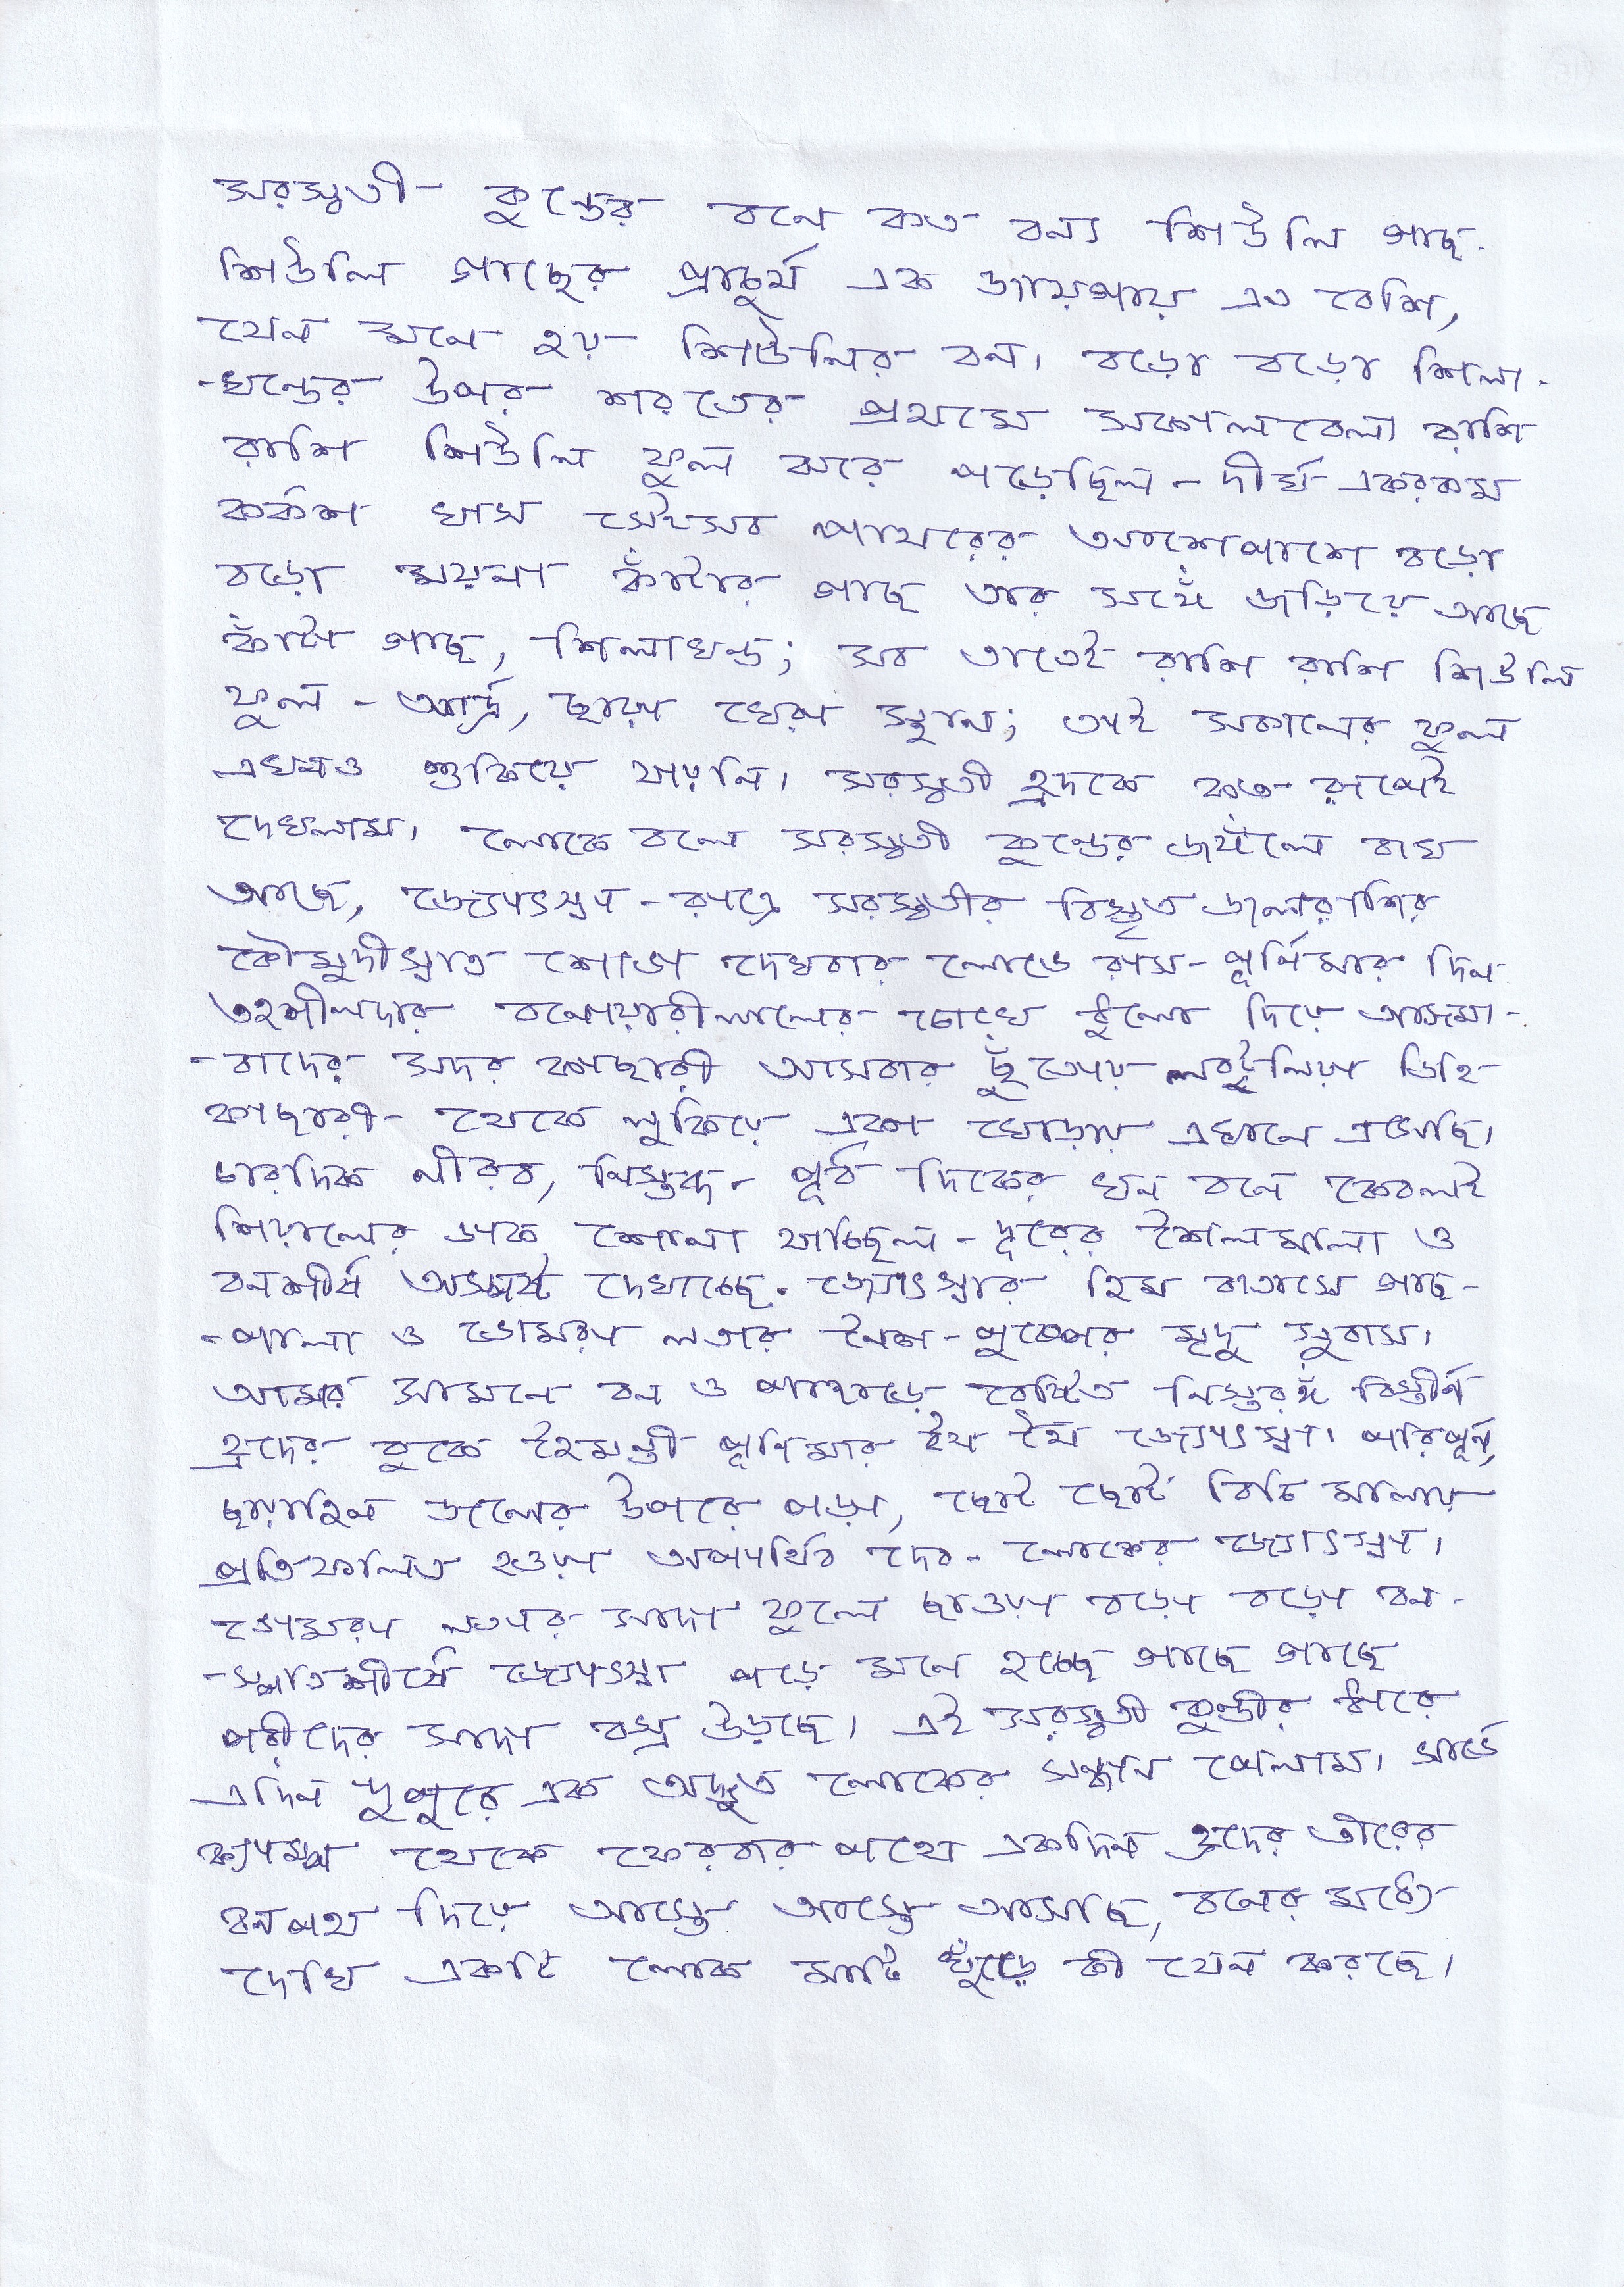 সরস্বতী কুন্ডের বনে কত বন্য শিউলি গাছ.
শিউলি গাছের প্রাচুর্য এক জায়গায় এত বেশি,
যেন মনে হয় শিউলির বন। বড়ো বড়ো শিলা-
-খন্ডের উপর শরতের প্রথমে সকালবেলা রাশি
রাশি শিউলি ফুল ঝরে পড়েছিল - দীর্ঘ একরকম
কর্কশ ঘাস সেইসব পাথরের আশেপাশে বড়ো
বড়ো ময়না কাঁটার গাছ তার সঙ্গে জড়িয়ে আছে
কাঁটা গাছ, শিলাখন্ড; সব তাতেই রাশি রাশি শিউলি
ফুল - আর্দ্র, ছায়া ঘেরা স্থান; তাই সকালের ফুল
এখনও শুকিয়ে যায়নি। সরস্বতী হ্রদকে কত রূপেই
দেখলাম। লোকে বলে সরস্বতী কুন্ডের জঙ্গলে বাঘ
আছে, জ্যোৎস্না - রাত্রে সরস্বতীর বিস্তৃত জলরাশির
কৌমুদীস্নাত শোভা দেখবার লোভে রাস- পূর্ণিমার দিন
তহশীলদার বনোয়ারীলালের চোখে ধুলো দিয়ে আজমা-
-বাদের সদর কাছারী আসবার ছুঁতোয় লবটুলিয়া ডিহি
কাছারী থেকে লুকিয়ে একা ঘোড়ায় এখানে এসেছি।
চারদিক নীরব, নিস্তব্ধ - পূর্ব দিকের ঘন বনে কেবলই
শিয়ালের ডাক শোনা যাচ্ছিল - দূরের শৈলমালা ও
বনশীর্ষ অস্পষ্ট দেখাচ্ছে. জ্যোৎস্নার হিম বাতাসে গাছ-
-পালা ও ভোমরা লতার নৈশ - পুষ্পের মৃদু সুবাস।
আমার সামনে বন ও পাহাড়ে বেষ্টিত নিস্তরঙ্গ বিস্তীর্ণ
হ্রদের বুকে হৈমন্তী পূর্ণিমার থৈ থৈ জ্যোৎস্না। পরিপূর্ণ,
ছায়াহীন জলের উপরে পড়া, ছোট ছোট বিচি মালায়
প্রতিফলিত হওয়া অপার্থিব দেব- লোকের জ্যোৎস্না।
ভোমরা লতার সাদা ফুলে ছাওয়া বড়ো বড়ো বন-
-স্পতিশীর্ষে জ্যোৎস্না পড়ে মনে হচ্ছে গাছে গাছে
পরীদের সাদা বস্ত্র উড়ছে। এই সরস্বতী কুন্ডীর ধারে
এদিন দুপুরে এক অদ্ভুত লোকের সন্ধান পেলাম। সার্ভে
ক্যাম্প থেকে ফেরবার পথে একদিন হ্রদের তীরের
বনপথ দিয়ে আস্তে আস্তে আসছি, বনের মধ্যে
দেখি একটি লোক মাটি খুঁড়ে কী যেন করছে।